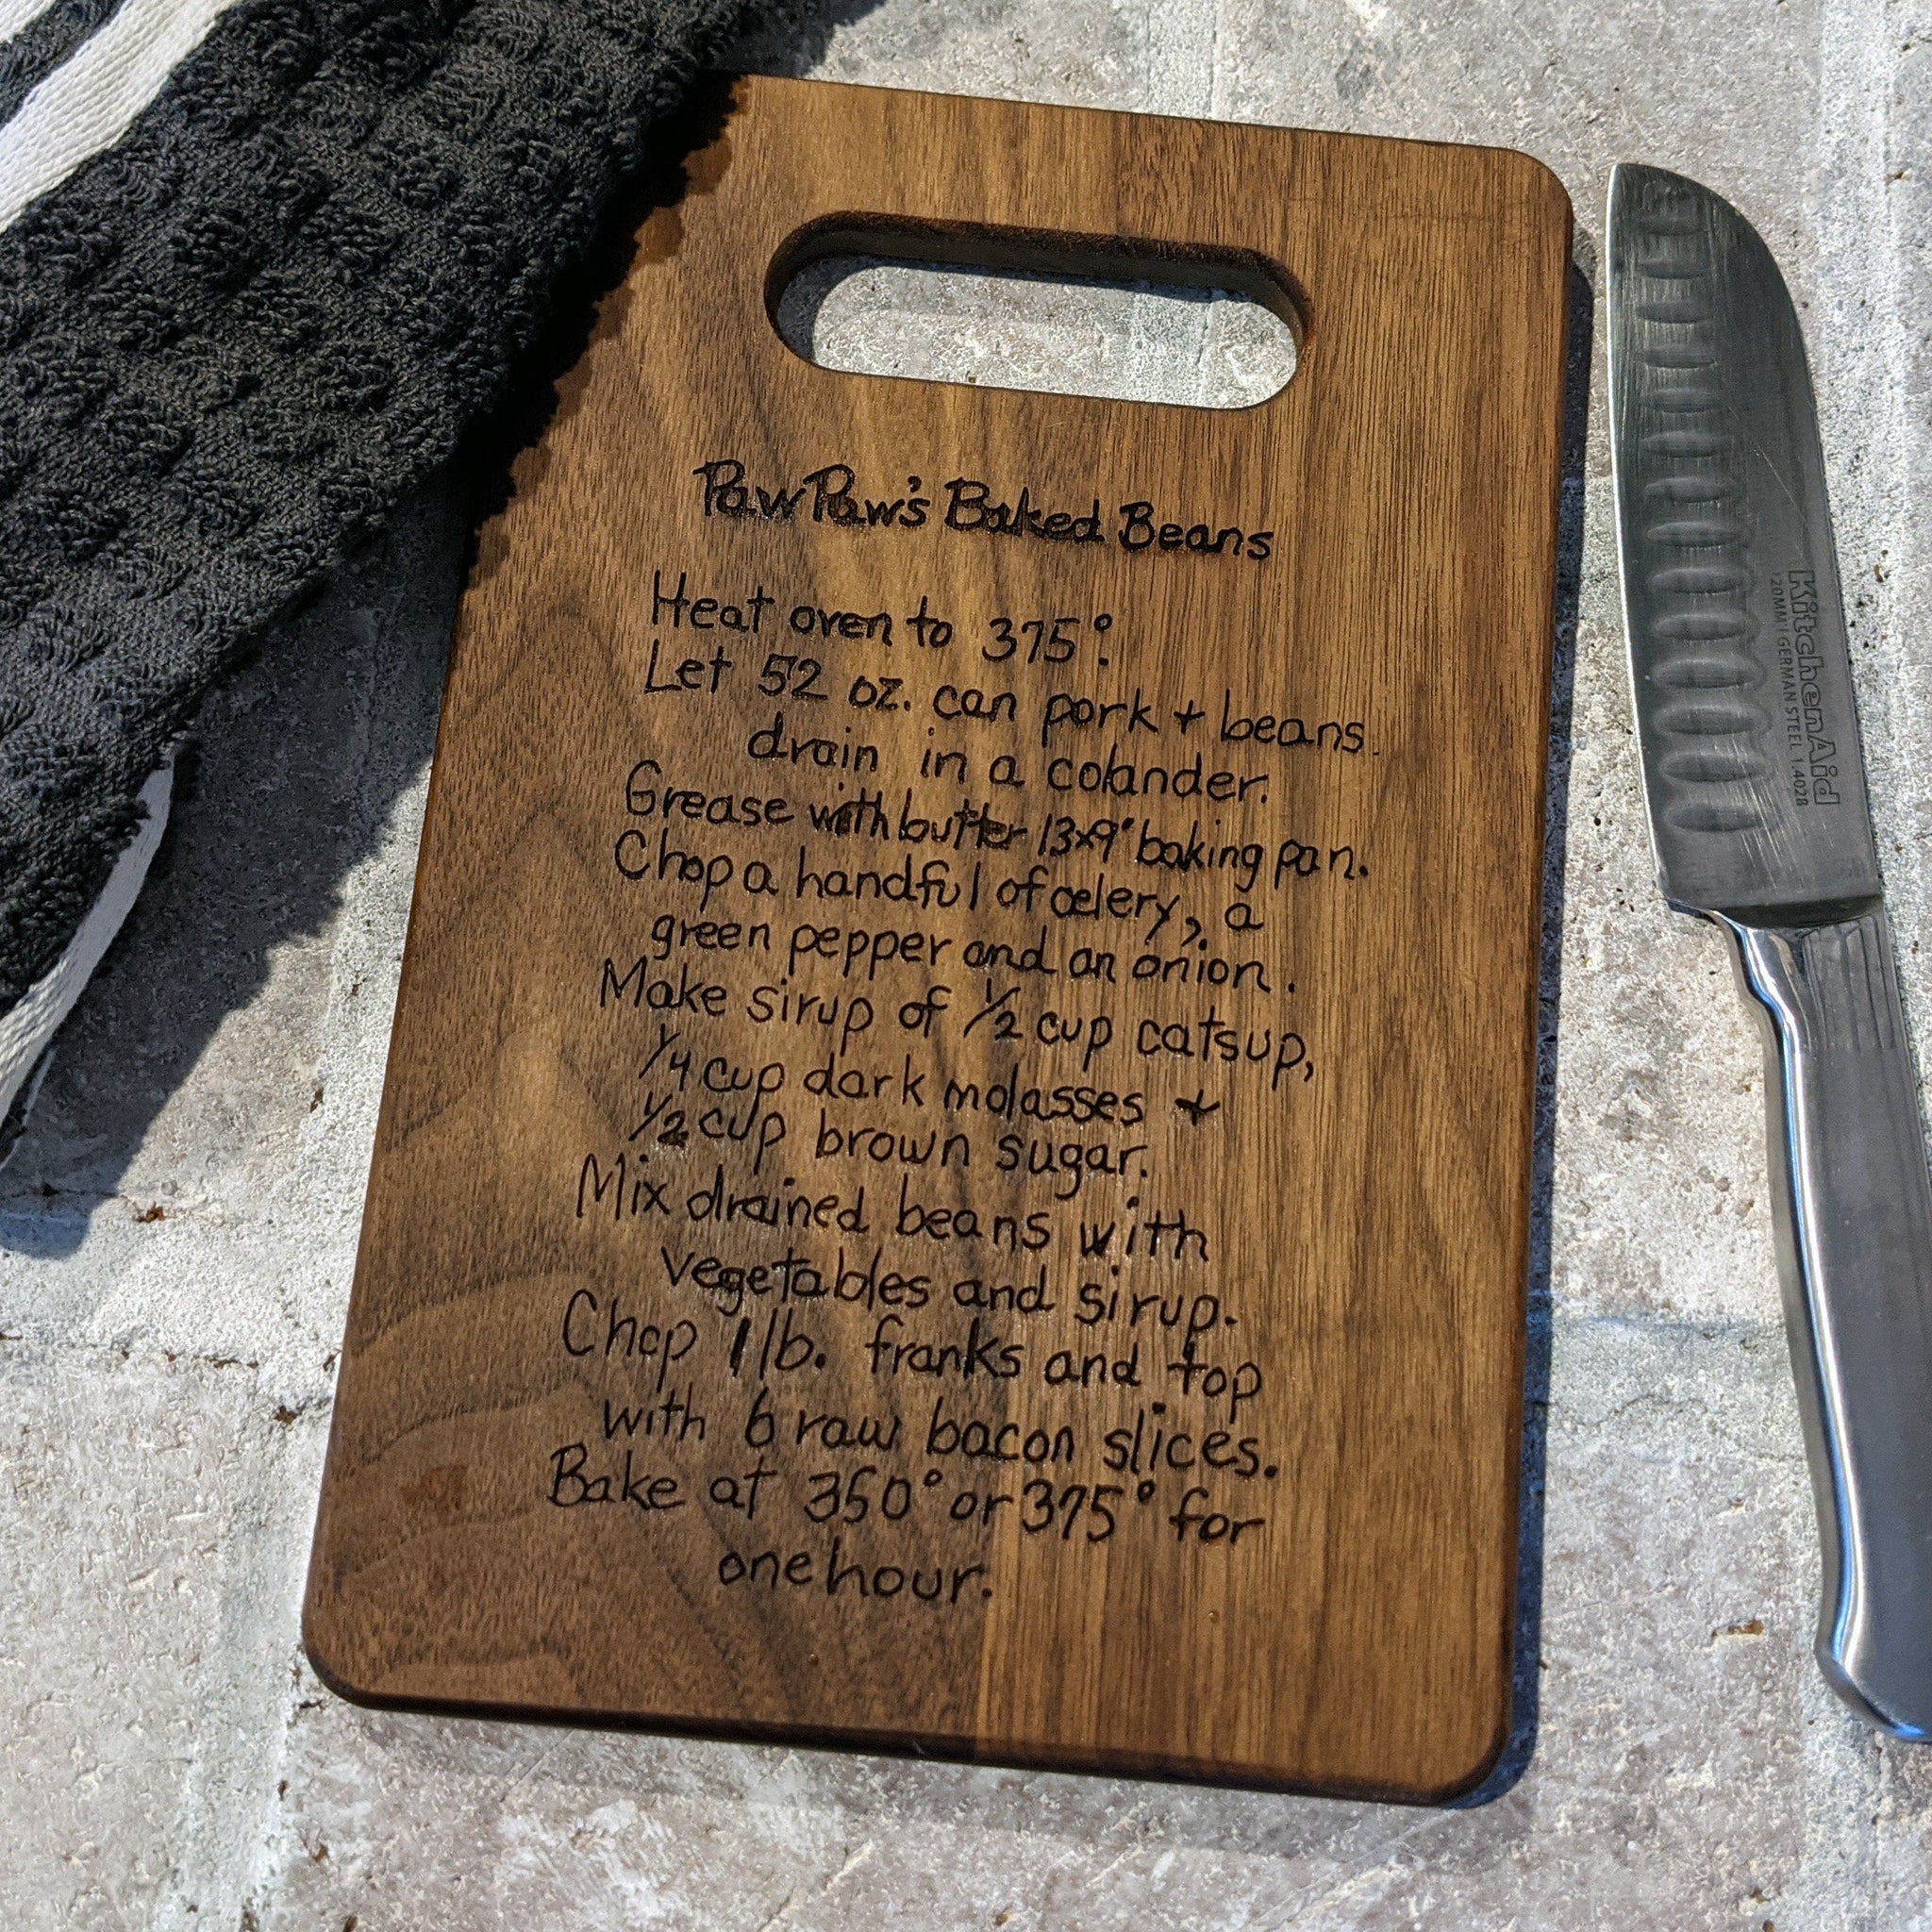 PawPaw's Baked Beans
Heat oven to 375°.
Let 52 oz. can pork + beans.
drain in a colander.
Grease with butter 13x9" baking pan.
Chop a handful of celery, a
green pepper and an onion.
Make sirup of 1/2 cup catsup,
1/4 cup dark molasses +
1/2 cup brown sugar.
Mix drained beans with
vegetables and sirup.
Chop 1 lb. franks and top
with 6 raw bacon slices.
Bake at 350° or 375° for
one hour.
KitchenAid
120MM | GERMAN STEEL 1.4028